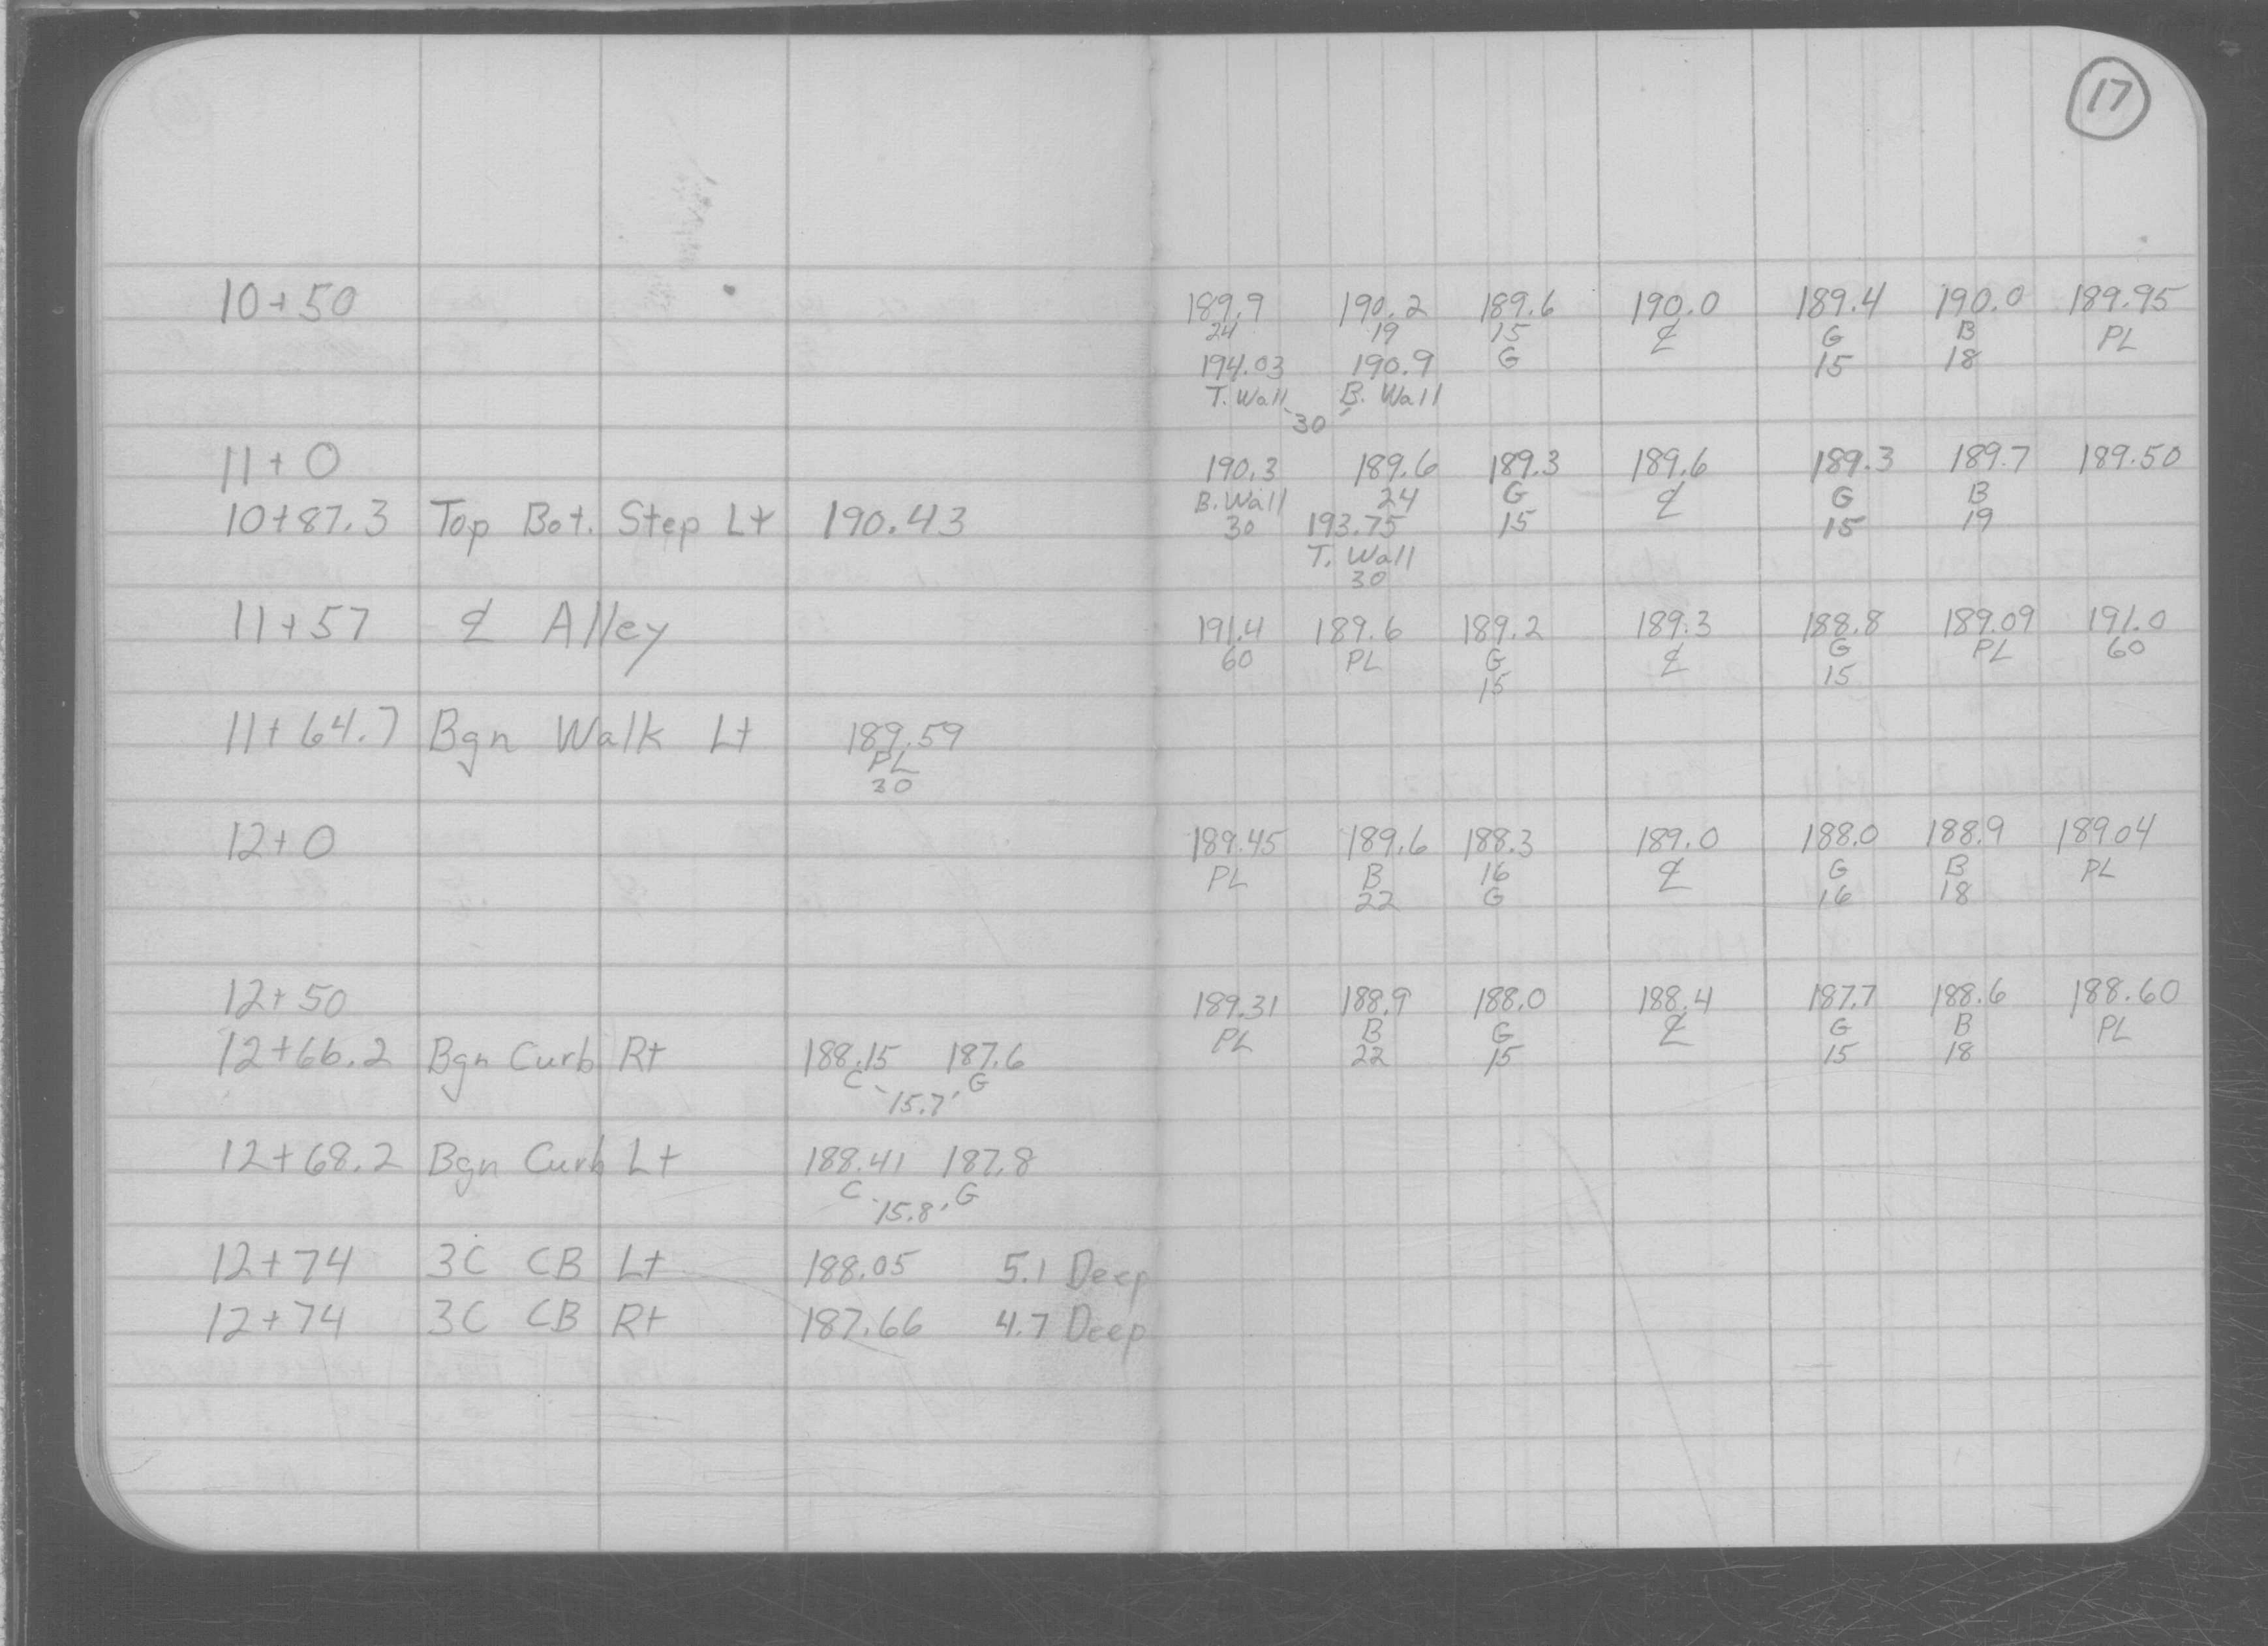 17
10+50 189.9 190.2 189.6 190.0 189.4 190.0 189.95
24 19 15 ℄ G B PL
194.03 190.9 G 15 18
T. Wall B. Wall
30
11+0 190.3 189.6 189.3 189.6 189.3 189.7 189.50
B. Wall 24 G ℄ G B
10+87.3 Top Bot. Step Lt 190.43 30 193.75 15 15 19
T. Wall
30
11+57 ℄ Alley 191.4 189.6 189.2 189.3 188.8 189.09 191.0
60 PL G ℄ G PL 60
15 15
11+64.7 Bgn Walk Lt 189.59
PL
30
12+0 189.45 189.6 188.3 189.0 188.0 188.9 189.04
PL B 16 ℄ G B PL
22 G 16 18
12+50 189.31 188.9 188.0 188.4 187.7 188.6 188.60
PL B G ℄ G B PL
12+66.2 Bgn Curb Rt 188.15 187.6 22 15 15 18
C G
15.7
12+68.2 Bgn Curb Lt 188.41 187.8
C G
15.8
12+74 3C CB Lt 188.05 5.1 Deep
12+74 3C CB Rt 187.66 4.7 Deep